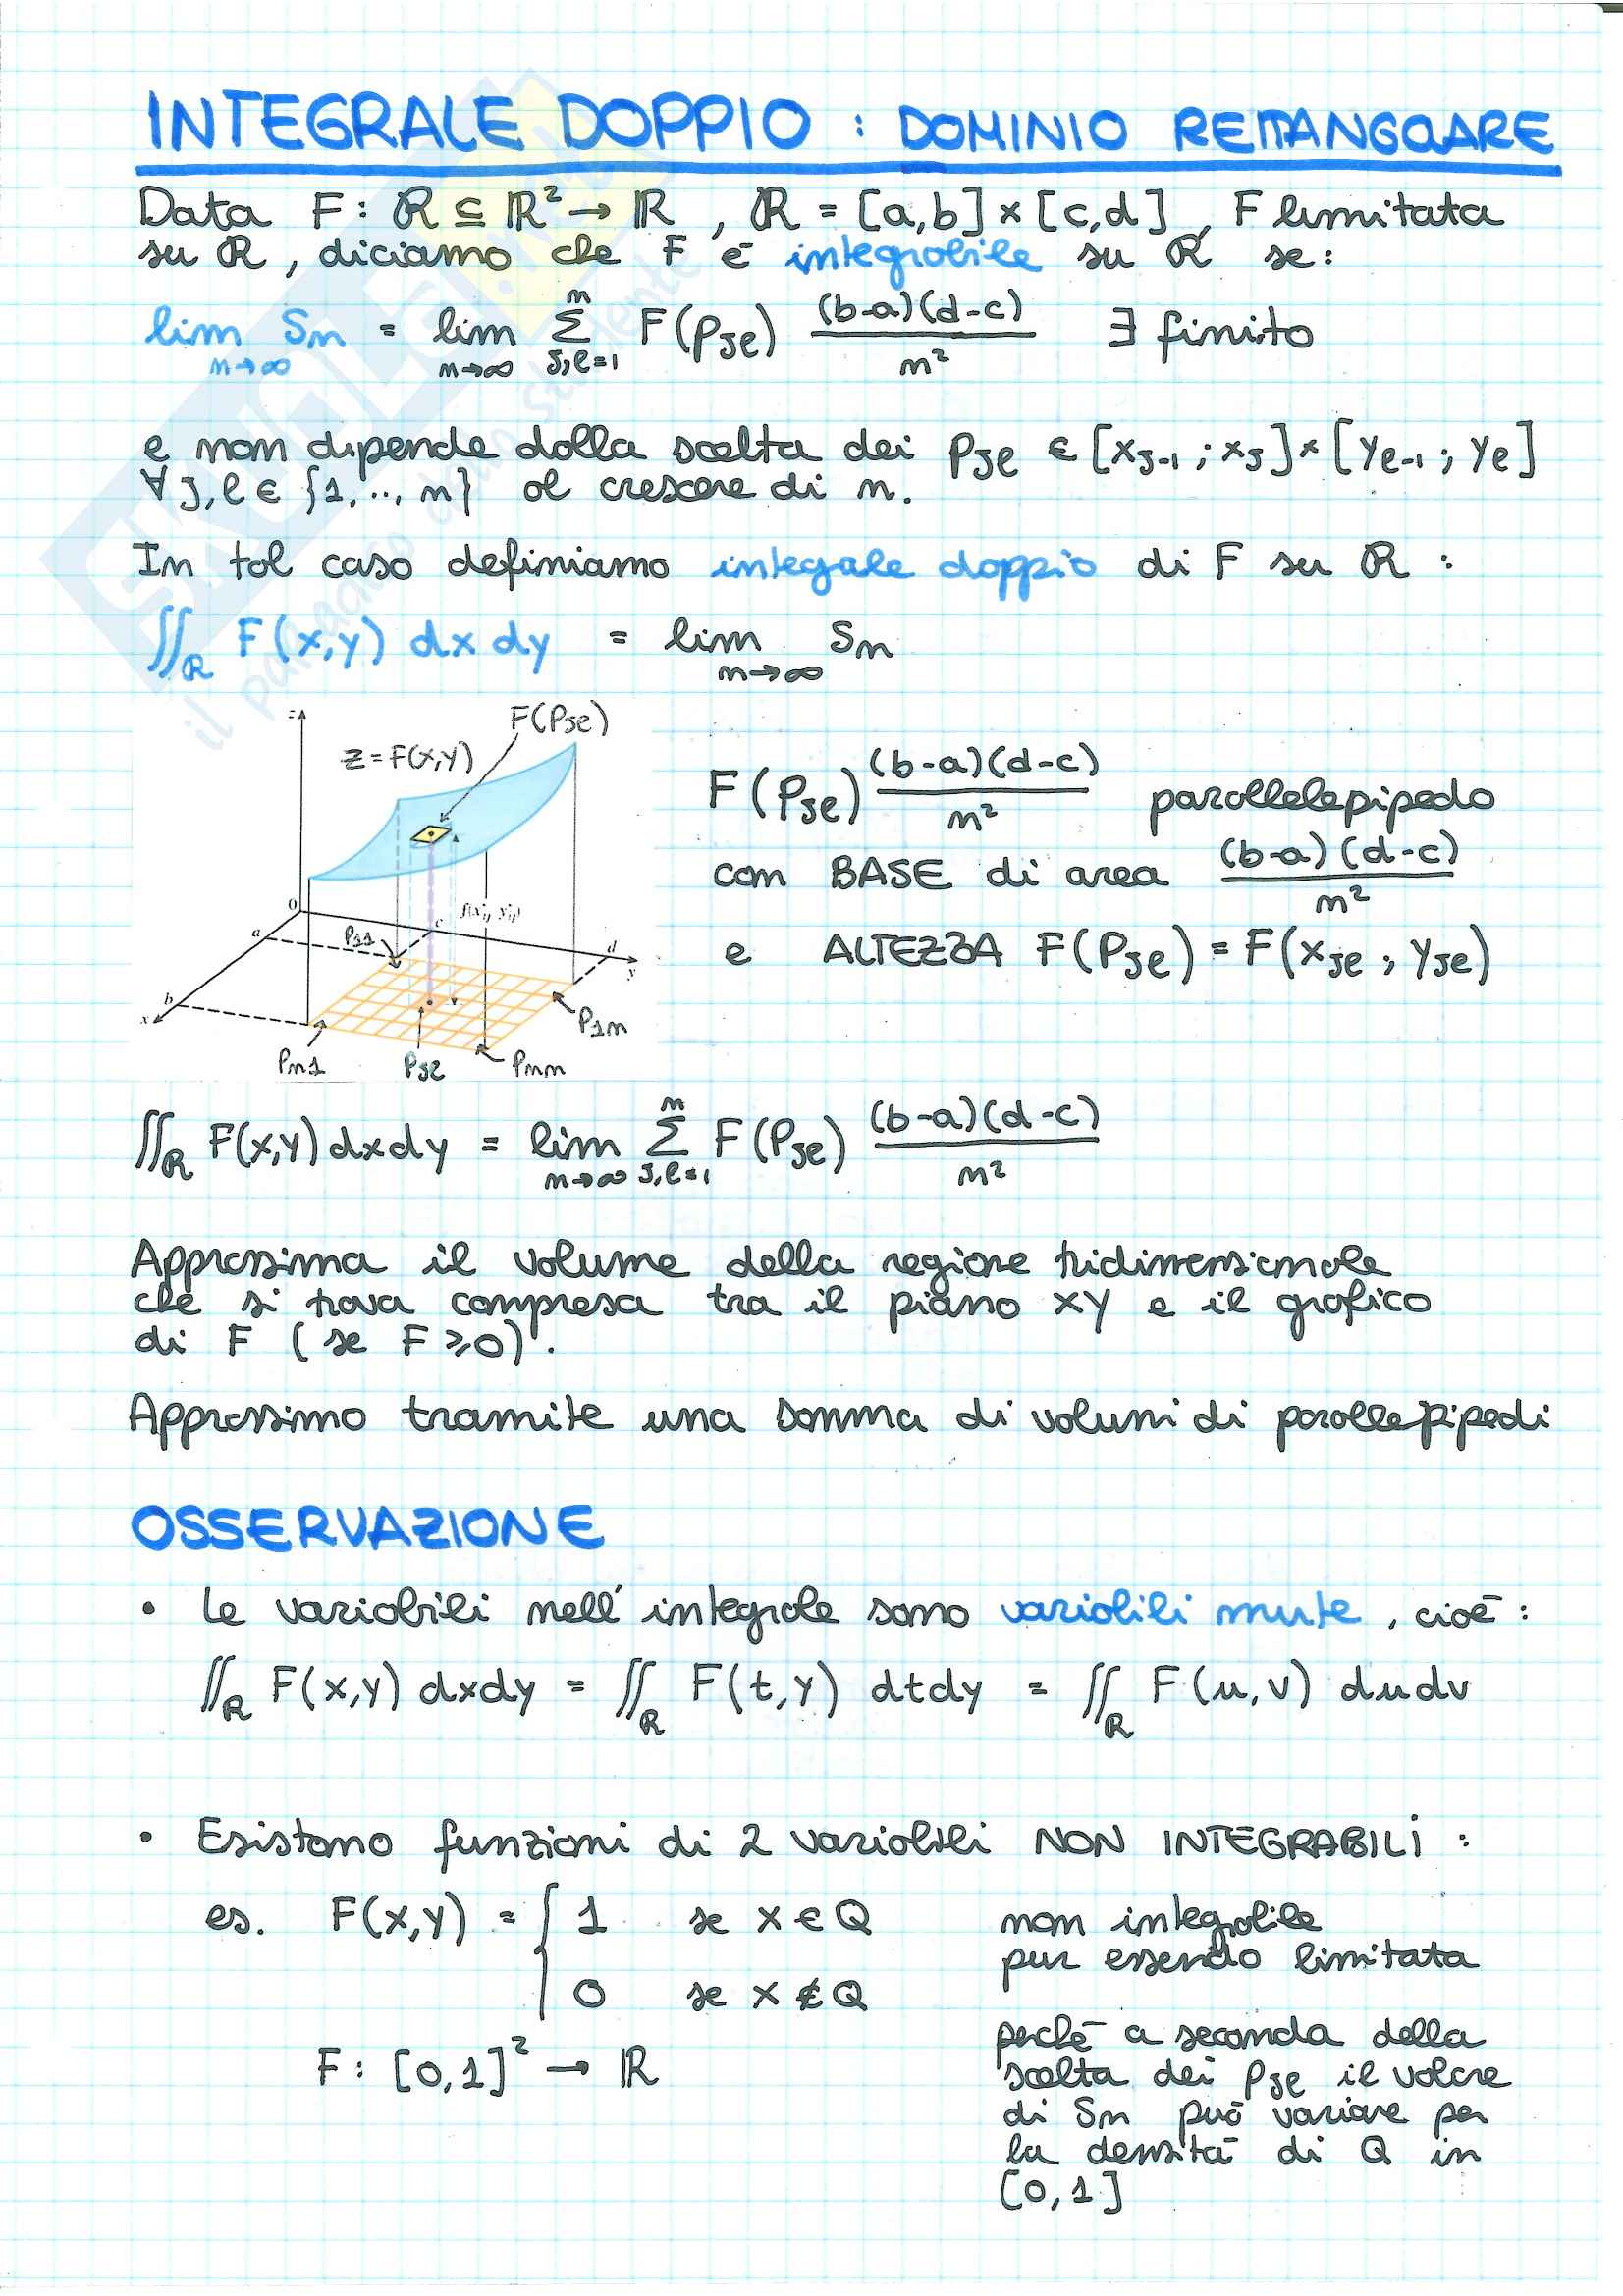 INTEGRALE DOPPIO : DOMINIO RETTANGOLARE
Data F: R ⊆ ℝ² → ℝ , R = [a,b] × [c,d] , F limitata
su R , diciamo che F è integrabile su R se:
lim n→∞ Sn = lim n→∞ Σ j,l=1 n F(Pjl) (b-a)(d-c)/n² ∃ finito
e non dipende dalla scelta dei Pjl ∈ [xj-1 ; xj] × [yl-1 ; yl]
∀ j,l ∈ {1,..,n} al crescere di n.
In tal caso definiamo integale doppio di F su R :
∬R F(x,y) dx dy = lim n→∞ Sn
z
F(Pjl)
z = F(x,y)
0
a
P11
c
d
y
b
x
P1n
Pn1
Pjl
Pnn
F(Pjl) (b-a)(d-c)/n² parallelepipedo
con BASE di area (b-a)(d-c)/n²
e ALTEZZA F(Pjl) = F(xjl ; yjl)
∬R F(x,y) dxdy = lim n→∞ Σ j,l=1 n F(Pjl) (b-a)(d-c)/n²
Approssima il volume della regione tridimensionale
che si trova compresa tra il piano XY e il grafico
di F (se F ⩾ 0).
Approssimo tramite una somma di volumi di parallepipedi
OSSERVAZIONE
• Le variabili nell' integrale sono variabili mute , cioè :
∬R F(x,y) dxdy = ∬R F(t,y) dtdy = ∬R F(u,v) dudv
• Esistono funzioni di 2 variabili NON INTEGRABILI :
es. F(x,y) = { 1 se x ∈ Q
0 se x ∉ Q
F: [0,1]² → ℝ
non integrabile
pur essendo limitata
perchè a seconda della
scelta dei Pjl il valore
di Sn può variare per
la densità di Q in
[0,1]